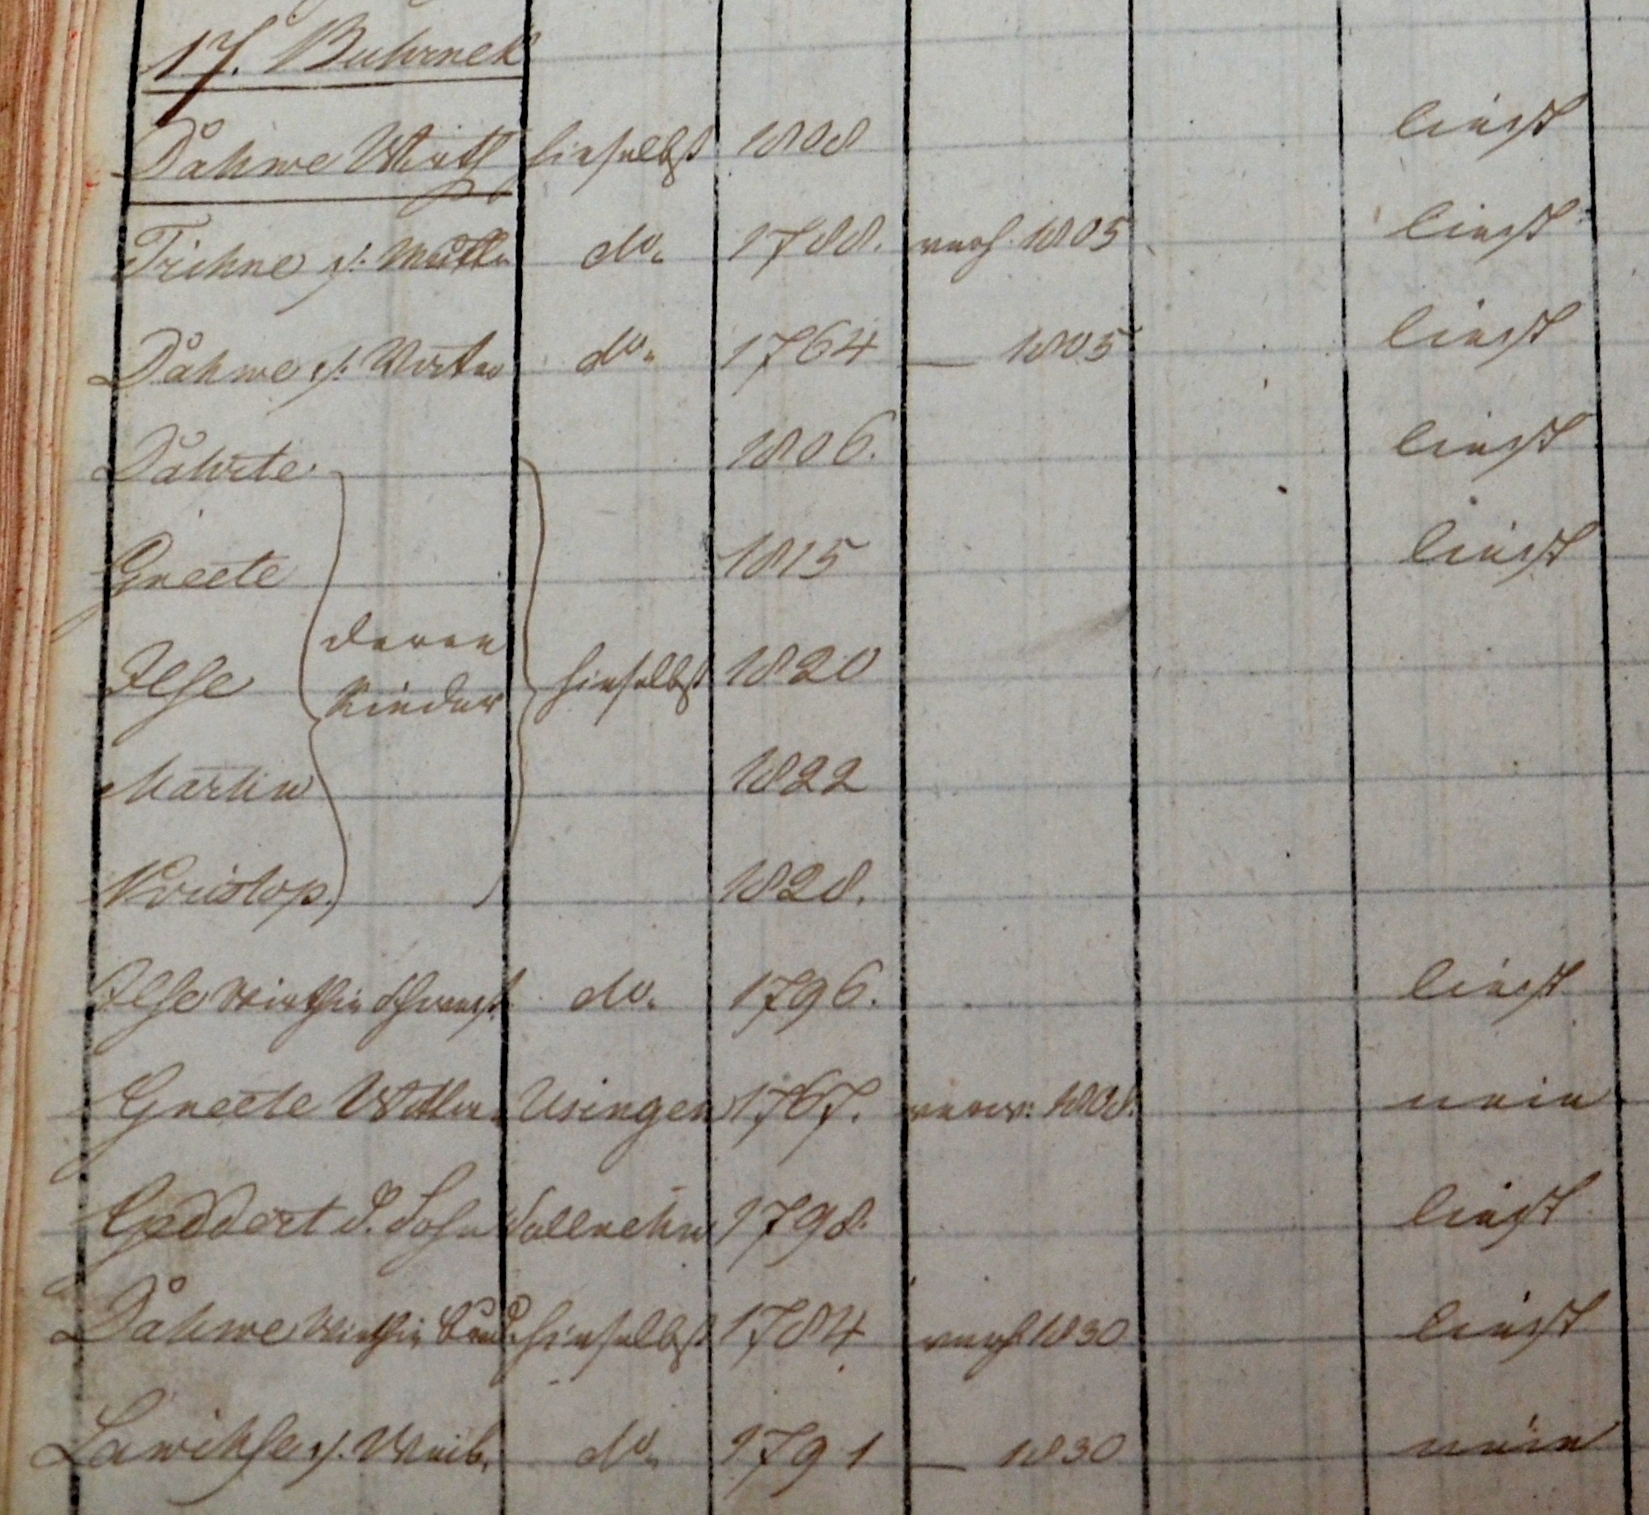 17. Buhrnek
Dåhwe Wirth hieselbst 1808 liest
Trihne s. Mutter do. 1788. verh. 1805 liest
Dåhwe s. Vater do. 1764 — 1805 liest
Dåhrte 1806. liest
Greete 1815 liest
deren
Ilse hieselbst 1820
Kinder
Martin 1822
Kristop. 1828.
Ilse Wirthin Schwest. do. 1796. liest
Greete Usingen 1767. verw: 1808. nein
Geddert d. Sohn 1798. liest
Dåhwe Wirthin hieselbst 1784 verh 1830 liest
Lawihse s. Weib. do. 1791 — 1830 nein